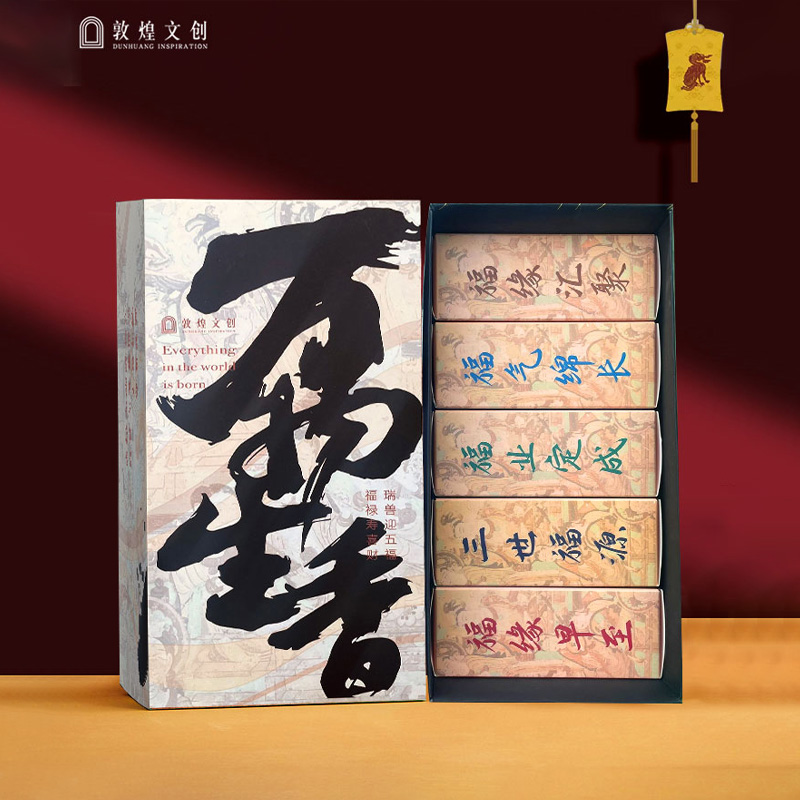 敦煌文创
DUNHUANG INSPIRATION
万物生香
敦煌文创
Everything
in the world
is born
瑞兽迎五福
福禄寿喜财
福缘汇聚
福气绵长
福业定成
三世福源
福缘早至